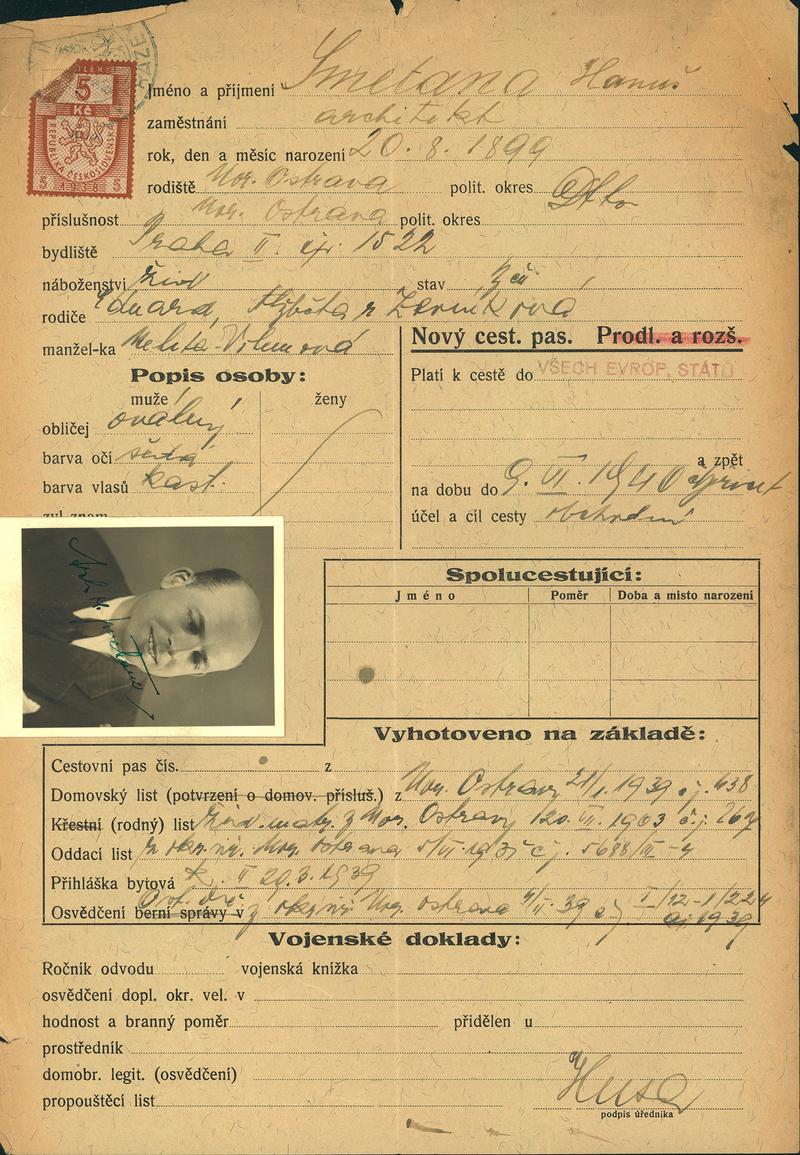 5
Kč
REPUBLIKA ČESKOSLOVENSKÁ
5 1938 5
Jméno a příjmení Smetana Hanuš
zaměstnání architekt
rok, den a měsíc narození 20. 8. 1899
rodiště Mor. Ostrava polit. okres
příslušnost Mor. Ostrava polit. okres
bydliště Praha II. čp. 1522
náboženství žid stav
rodiče Eduard,
manžel-ka Melita
Nový cest. pas. Prodl. a rozš.
Popis osoby:
muže ženy
Platí k cestě do VŠECH EVROP. STÁTŮ
obličej oválný
barva očí šedá
barva vlasů kašt.
a zpět
na dobu do 9. VI. 1940
účel a cíl cesty obchodní
zvl. znam.
Spolucestující:
Jméno Poměr Doba a místo narození
Vyhotoveno na základě:
Cestovní pas čís. z
Domovský list (potvrzení o domov. přísluš.) z Mor. Ostravy 21/1. 1939 čj. 438
Křestní (rodný) list Žid. matr. z Mor. Ostravy VII. 1903 č.j.
Oddací list Mor. Ostrava č.j. 5688/III-4
Přihláška bytová II 20.3.1939
Osvědčení berní správy v Mor. Ostrava 39 1939
Vojenské doklady:
Ročník odvodu vojenská knížka
osvědčení dopl. okr. vel. v
hodnost a branný poměr přidělen u
prostředník
domobr. legit. (osvědčení)
propouštěcí list
Husa
podpis úředníka